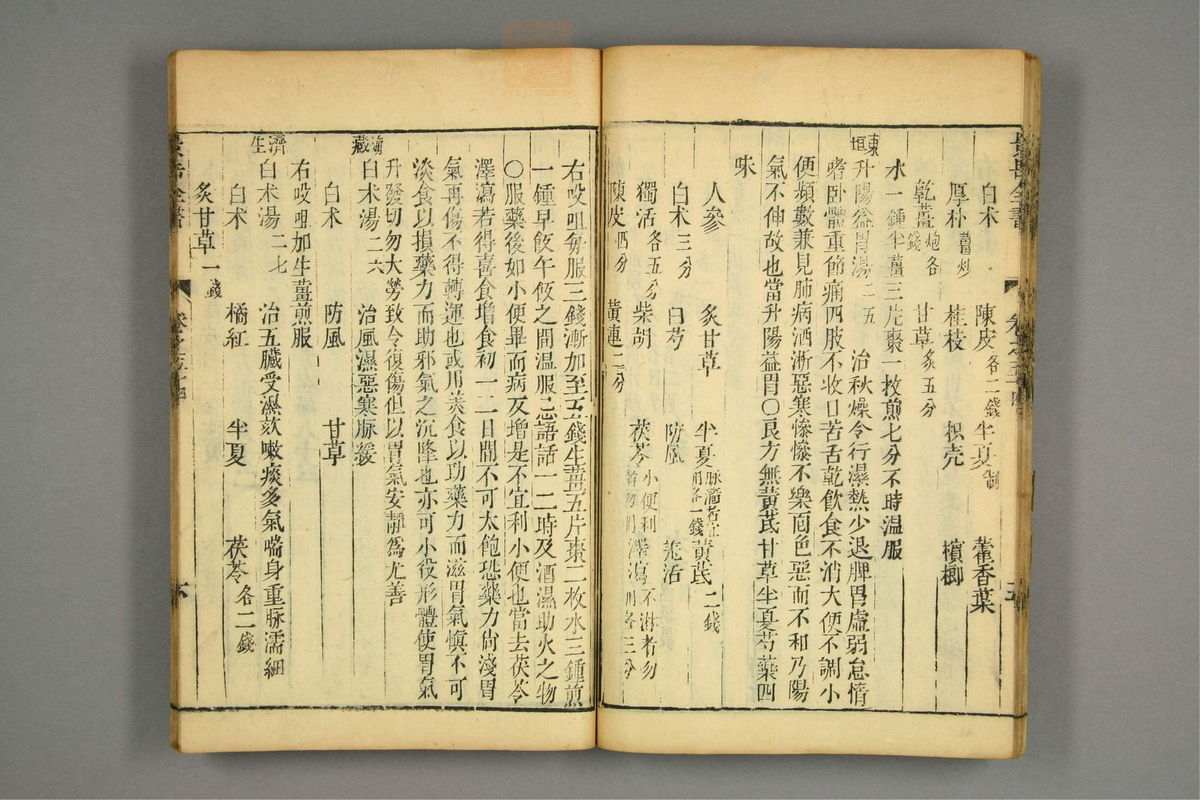 白朮 陳皮各二錢 半夏制 藿香葉
厚朴薑炒 桂枝 枳壳 檳榔
乾薑炮各錢 甘草炙五分
水一鍾半薑三片棗一枚煎七分不時温服
東垣升陽益胃湯二五 治秋燥令行濕熱少退脾胃虛弱怠惰
嗜卧體重節痛四肢不收口苦舌乾飲食不消大便不調小
便頻數兼見肺病洒淅惡寒慘慘不樂面色惡而不和乃陽
氣不伸故也當升陽益胃〇良方無黃芪甘草半夏芍藥四
味
人參 炙甘草 半夏脉濇者宜用各一錢 黃芪二錢
白朮三分 白芍 防風 羌活
獨活各五分 柴胡 茯苓小便利者勿用 澤瀉不淋者勿用各三分
陳皮四分 黃連二分
右㕮咀每服三錢漸加至五錢生薑五片棗二枚水三鍾煎
一鍾早飯午飯之間温服忌語話一二時及酒濕助火之物
〇服藥後如小便畢而病反增是不宜利小便也當去茯苓
澤瀉若得喜食增食初一二日間不可太飽恐藥力尚淺胃
氣再傷不得轉運也或用美食以助藥力而滋胃氣慎不可
淡食以損藥力而助邪氣之沉降也亦可小役形體使胃氣
升發切勿大勞致令復傷但以胃氣安靜爲尤善
瀚藏白朮湯二六 治風濕惡寒脉緩
白朮 防風 甘草
右㕮咀加生薑煎服
濟生白朮湯二七 治五臟受濕欬嗽痰多氣喘身重脉濡細
白朮 橘紅 半夏 茯苓各二錢
炙甘草一錢
景岳全書 卷之五十四